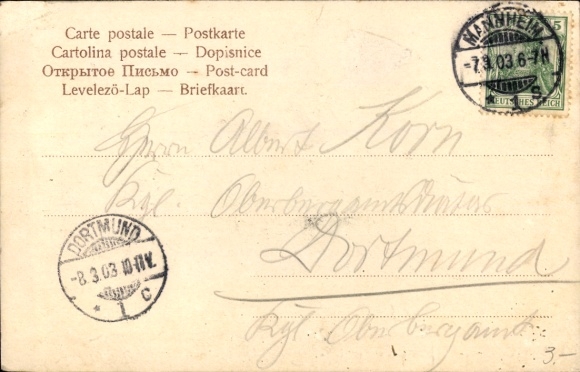 Carte postale — Postkarte
Cartolina postale — Dopisnice
Открытое Письмо — Post-card
Levelező-Lap — Briefkaart.
MANNHEIM
-7.3.03 6-7N
* 1 S.
5
DEUTSCHES REICH
Herrn Albert Korn
Kgl.
Dortmund
Kgl. Oberbergamt
DORTMUND
-8.3.03 10-11V.
* 1 c
3.-